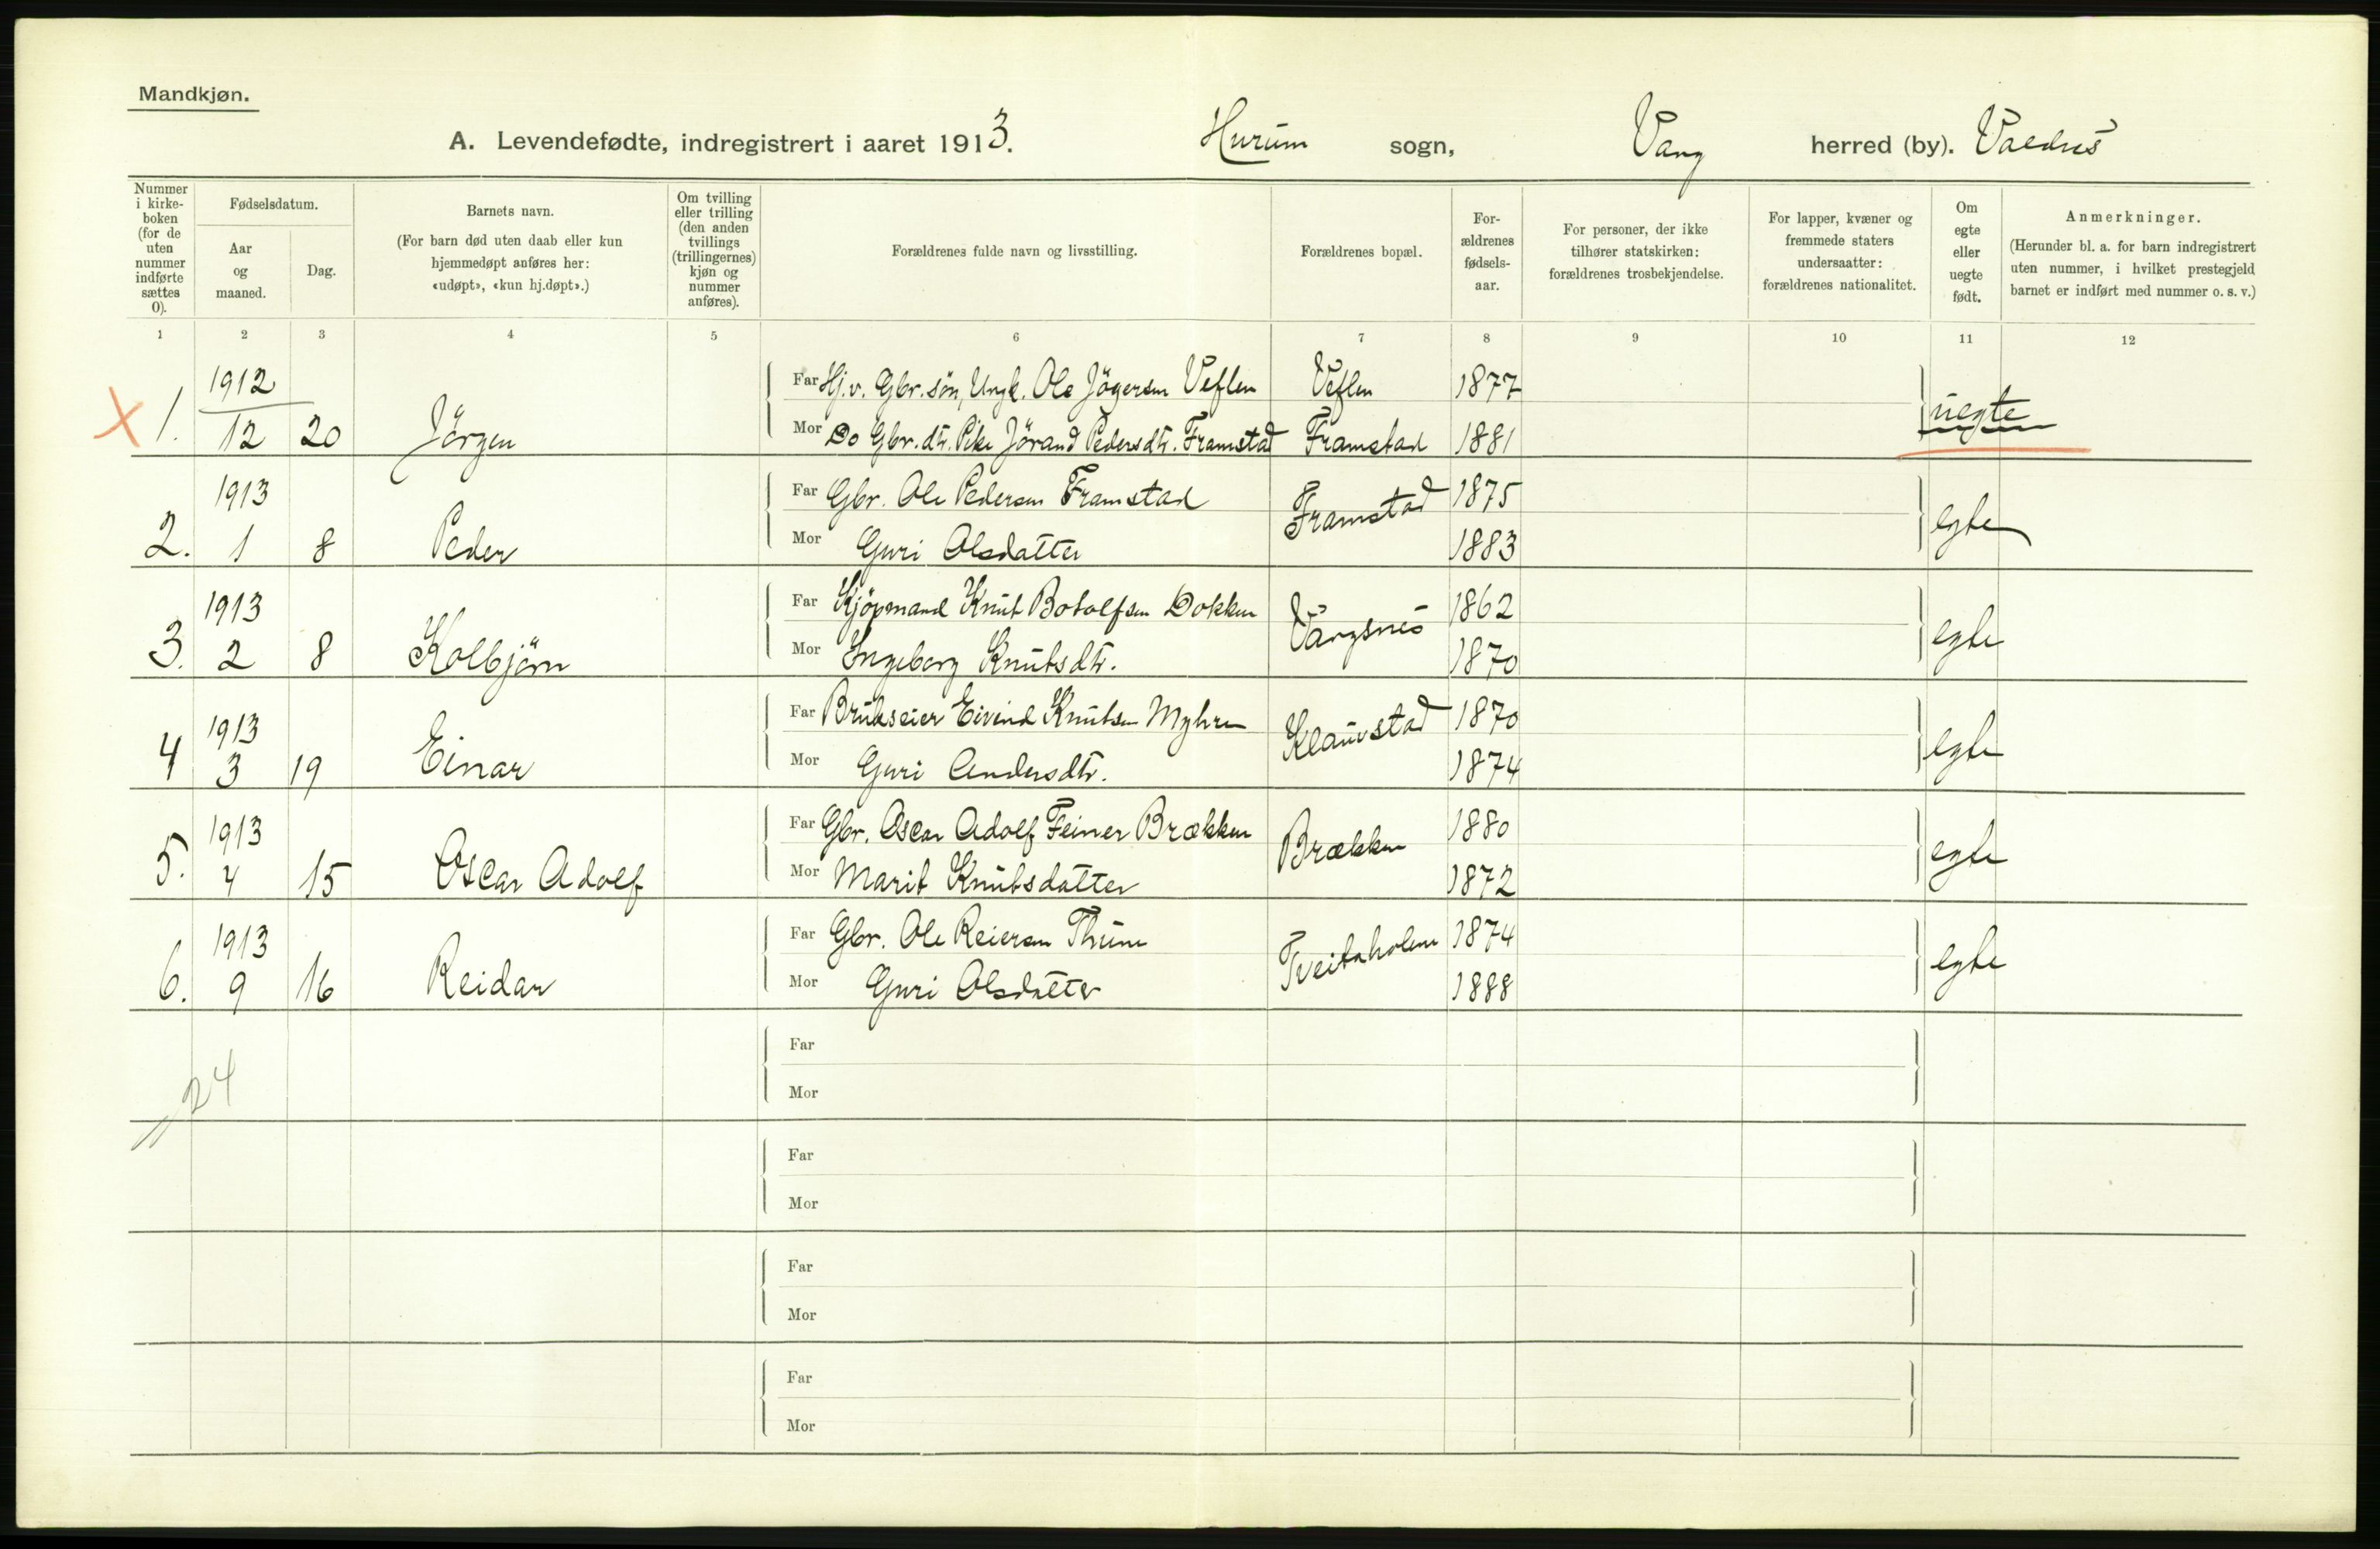 Mandkjøn.
A. Levendefødte, indregistrert i aaret 1913. Hurum sogn, Vang herred (by). Valdres
Nummer i kirke-boken (for de uten nummer indførte sættes 0).
Fødselsdatum.
Aar og maaned.
Dag.
Barnets navn.
(For barn død uten daab eller kun hjemmedøpt anføres her: «udøpt», «kun hj.døpt».)
Om tvilling eller trilling (den anden tvillings (trillingernes) kjøn og nummer anføres).
Forældrenes fulde navn og livsstilling.
Forældrenes bopæl.
For-ældrenes fødsels-aar.
For personer, der ikke tilhører statskirken: forældrenes trosbekjendelse.
For lapper, kvæner og fremmede staters undersaatter: forældrenes nationalitet.
Om egte eller uegte født.
Anmerkninger.
(Herunder bl. a. for barn indregistrert uten nummer, i hvilket prestegjeld barnet er indført med nummer o. s. v.)
1 2 3 4 5 6 7 8 9 10 11 12
1912
Far Hj.v. Gbr. søn, Ungk. Ole Jögersen Veflen Veflen 1877
X 1. 12 20 Jörgen
Mor Do Gbr. dtr. Pike Jörand Pedersdtr. Framstad Framstad 1881 uegte
1913
Far Gbr. Ole Pedersen Framstad Framstad 1875
2. 1 8 Peder
Mor Guri Olsdatter 1883 egte
1913
Far Kjöpmand Knut Botolfsen Dokken Vangsnes 1862
3. 2 8 Kolbjörn
Mor Ingeborg Knutsdtr. 1870 egte
1913
Far Brukseier Eivind Knutsen Myhre Klauvstad 1870
4 3 19 Einar
Mor Guri Andersdtr. 1874 egte
1913
Far Gbr. Oscar Adolf Feiner Brækken Brækken 1880
5. 4 15 Oscar Adolf
Mor Marit Knutsdatter 1872 egte
1913
Far Gbr. Ole Reiersen Thune Tveitaholem 1874
6. 9 16 Reidar
Mor Guri Olsdatter 1888 egte
Far
24
Mor
Far
Mor
Far
Mor
Far
Mor